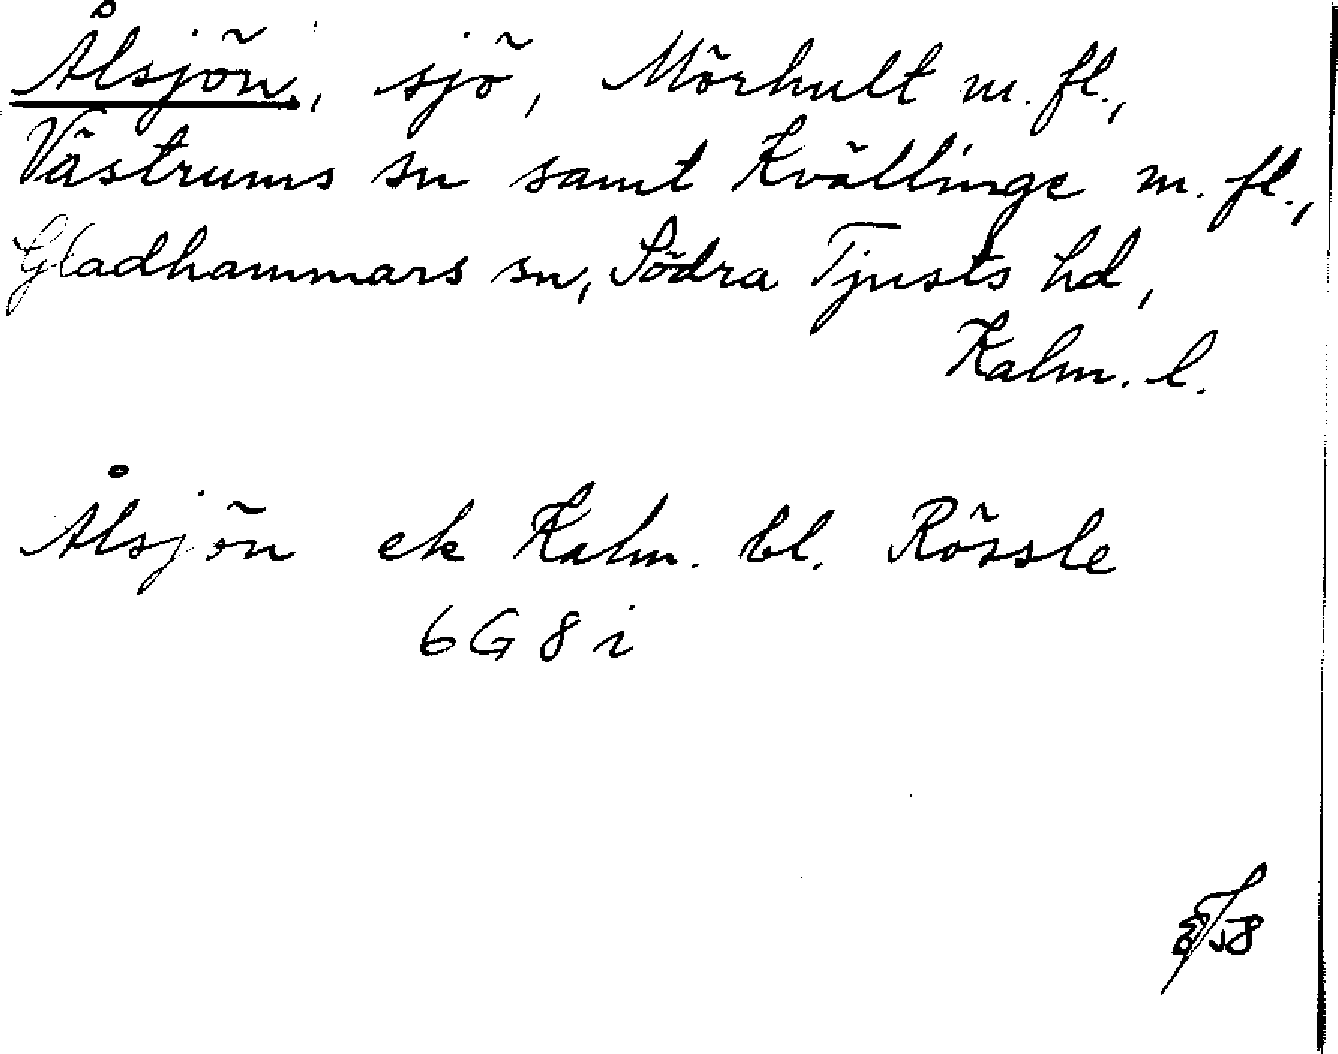 Ålsjön, sjö, Mörhult m. fl.,
Västrums sn samt Kvällinge m. fl.,
Gladhammars sn, Södra Tjusts hd,
Kalm. l.
Ålsjön ek Kalm. bl. Rössle
6G 8i